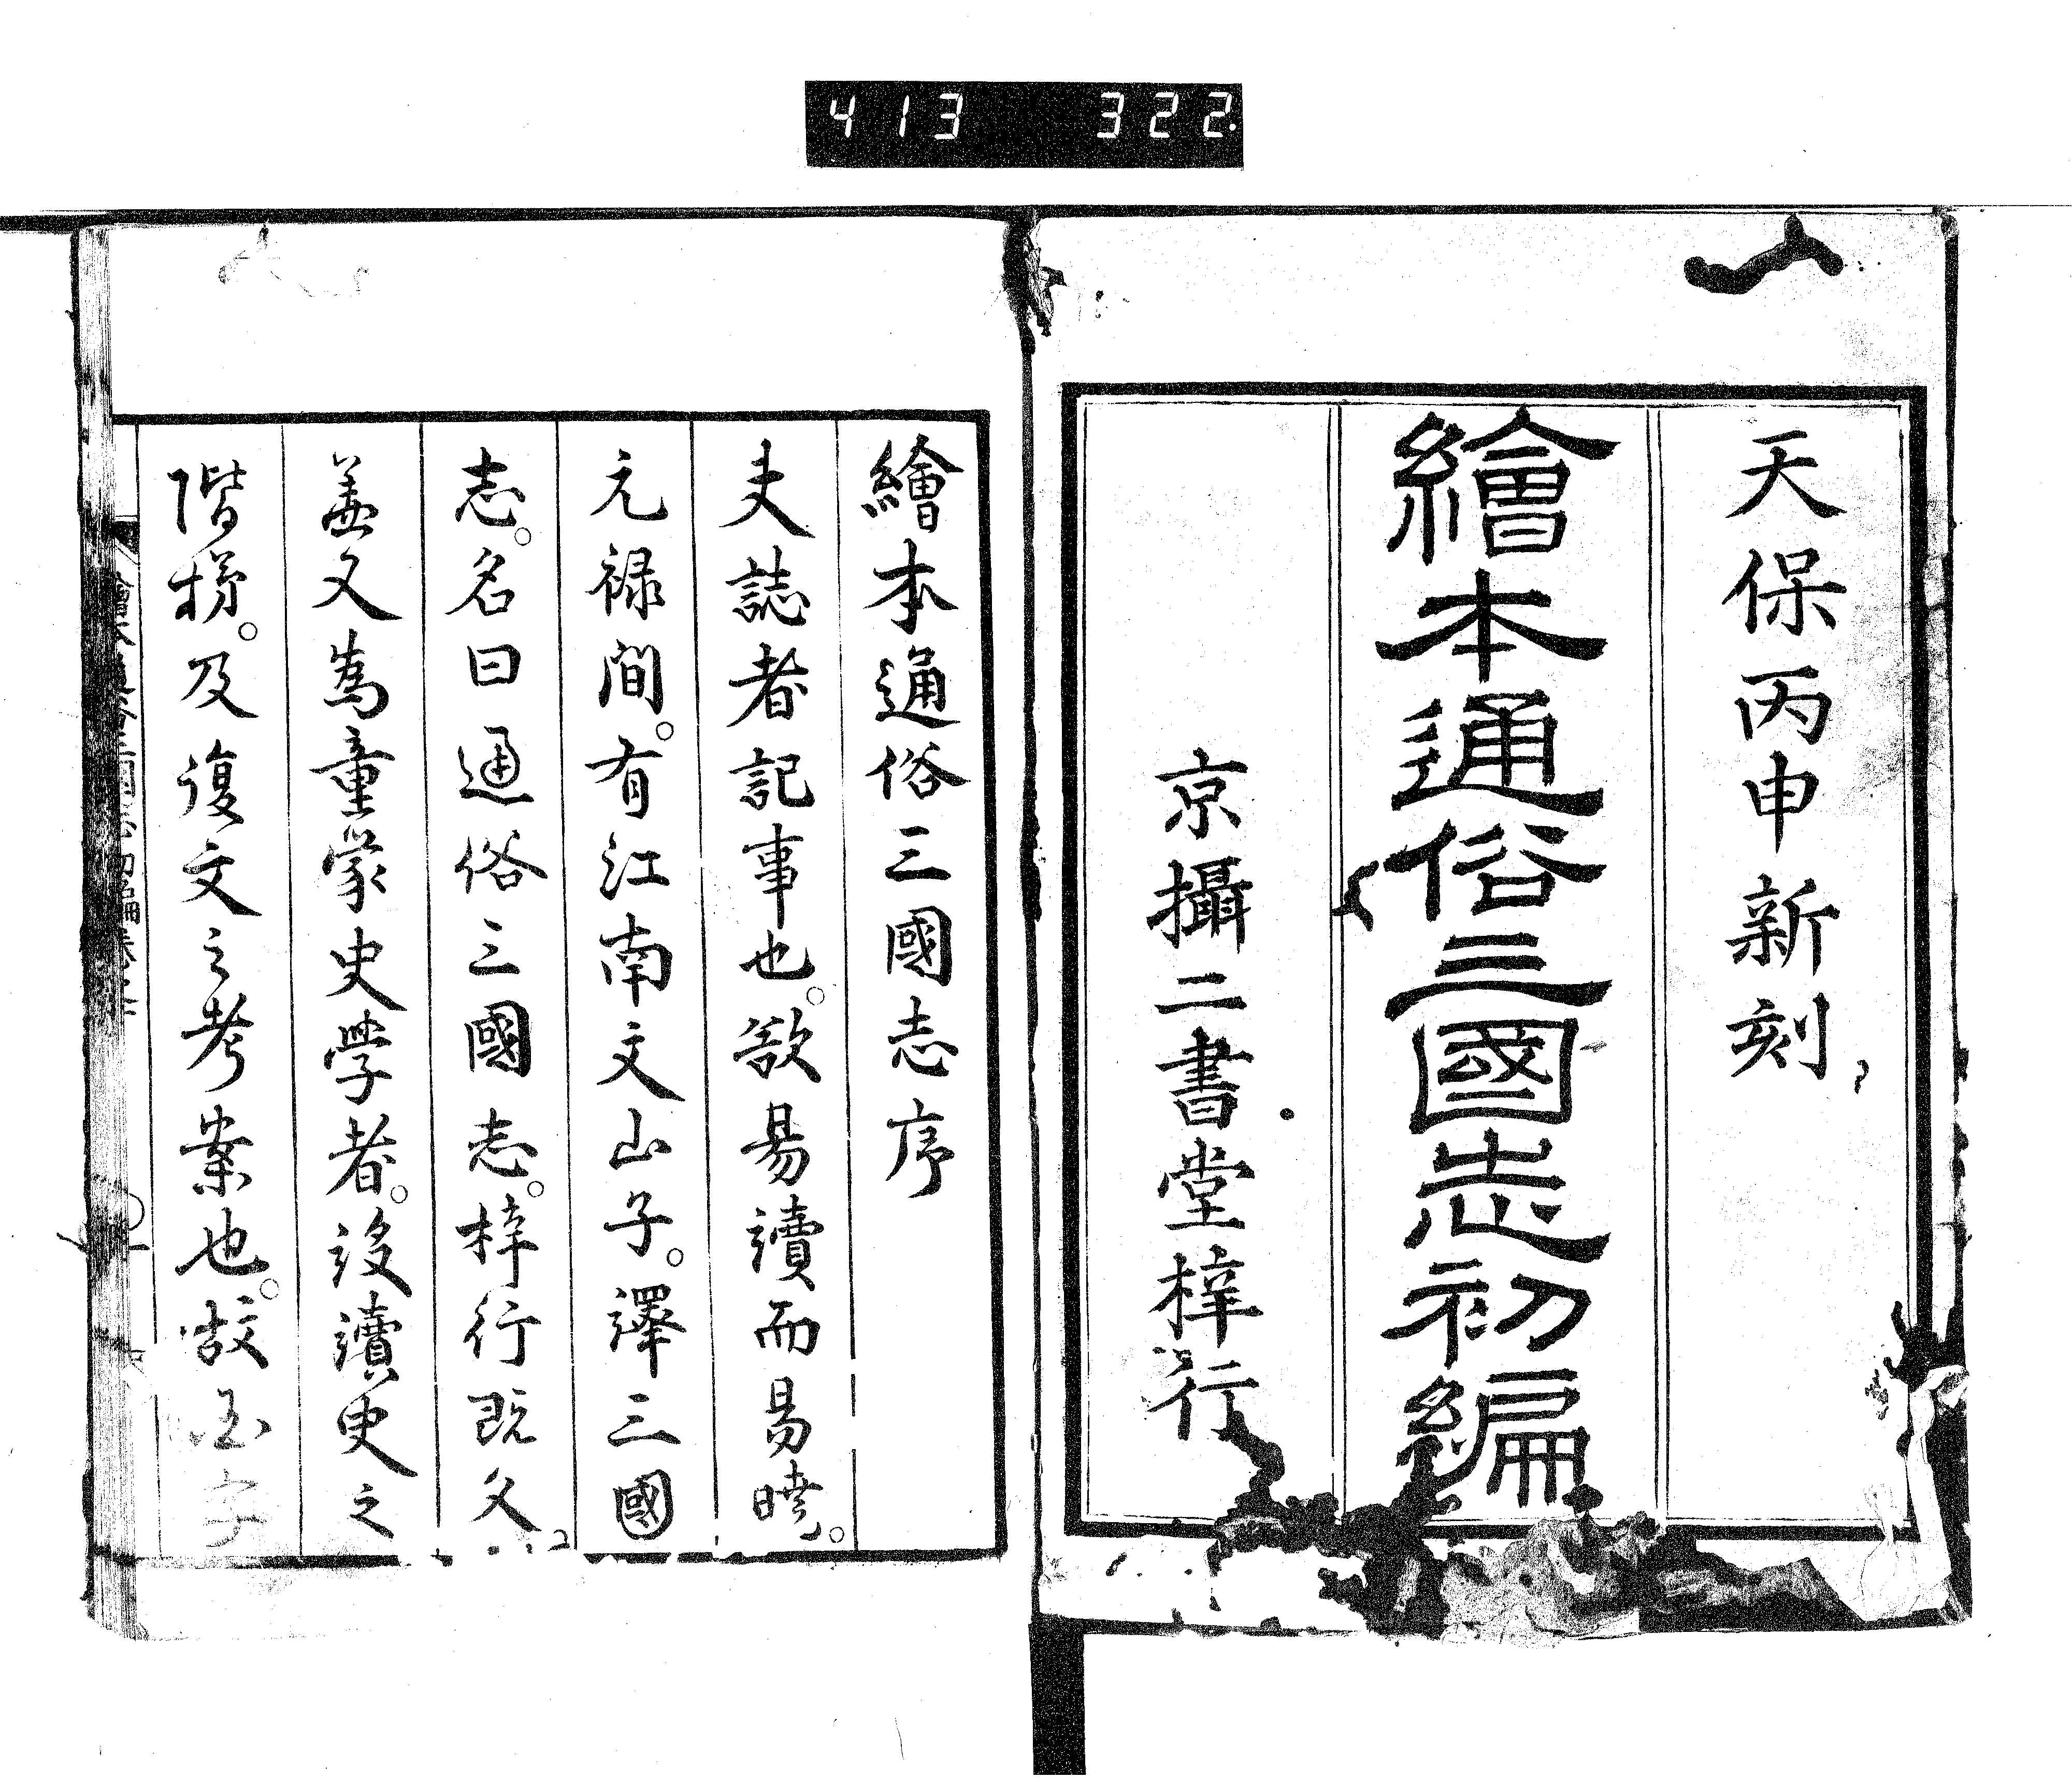 413 322
天保丙申新刻
繪本通俗三國志初編
京攝二書堂梓行
繪本通俗三國志序
夫誌者記事也。欲易讀而易曉。
元禄間。有江南文山子。譯三國
志。名曰通俗三國志。梓行既久。
蓋又為童蒙史學者。設讀史之
階梯。及復文之考案也。故